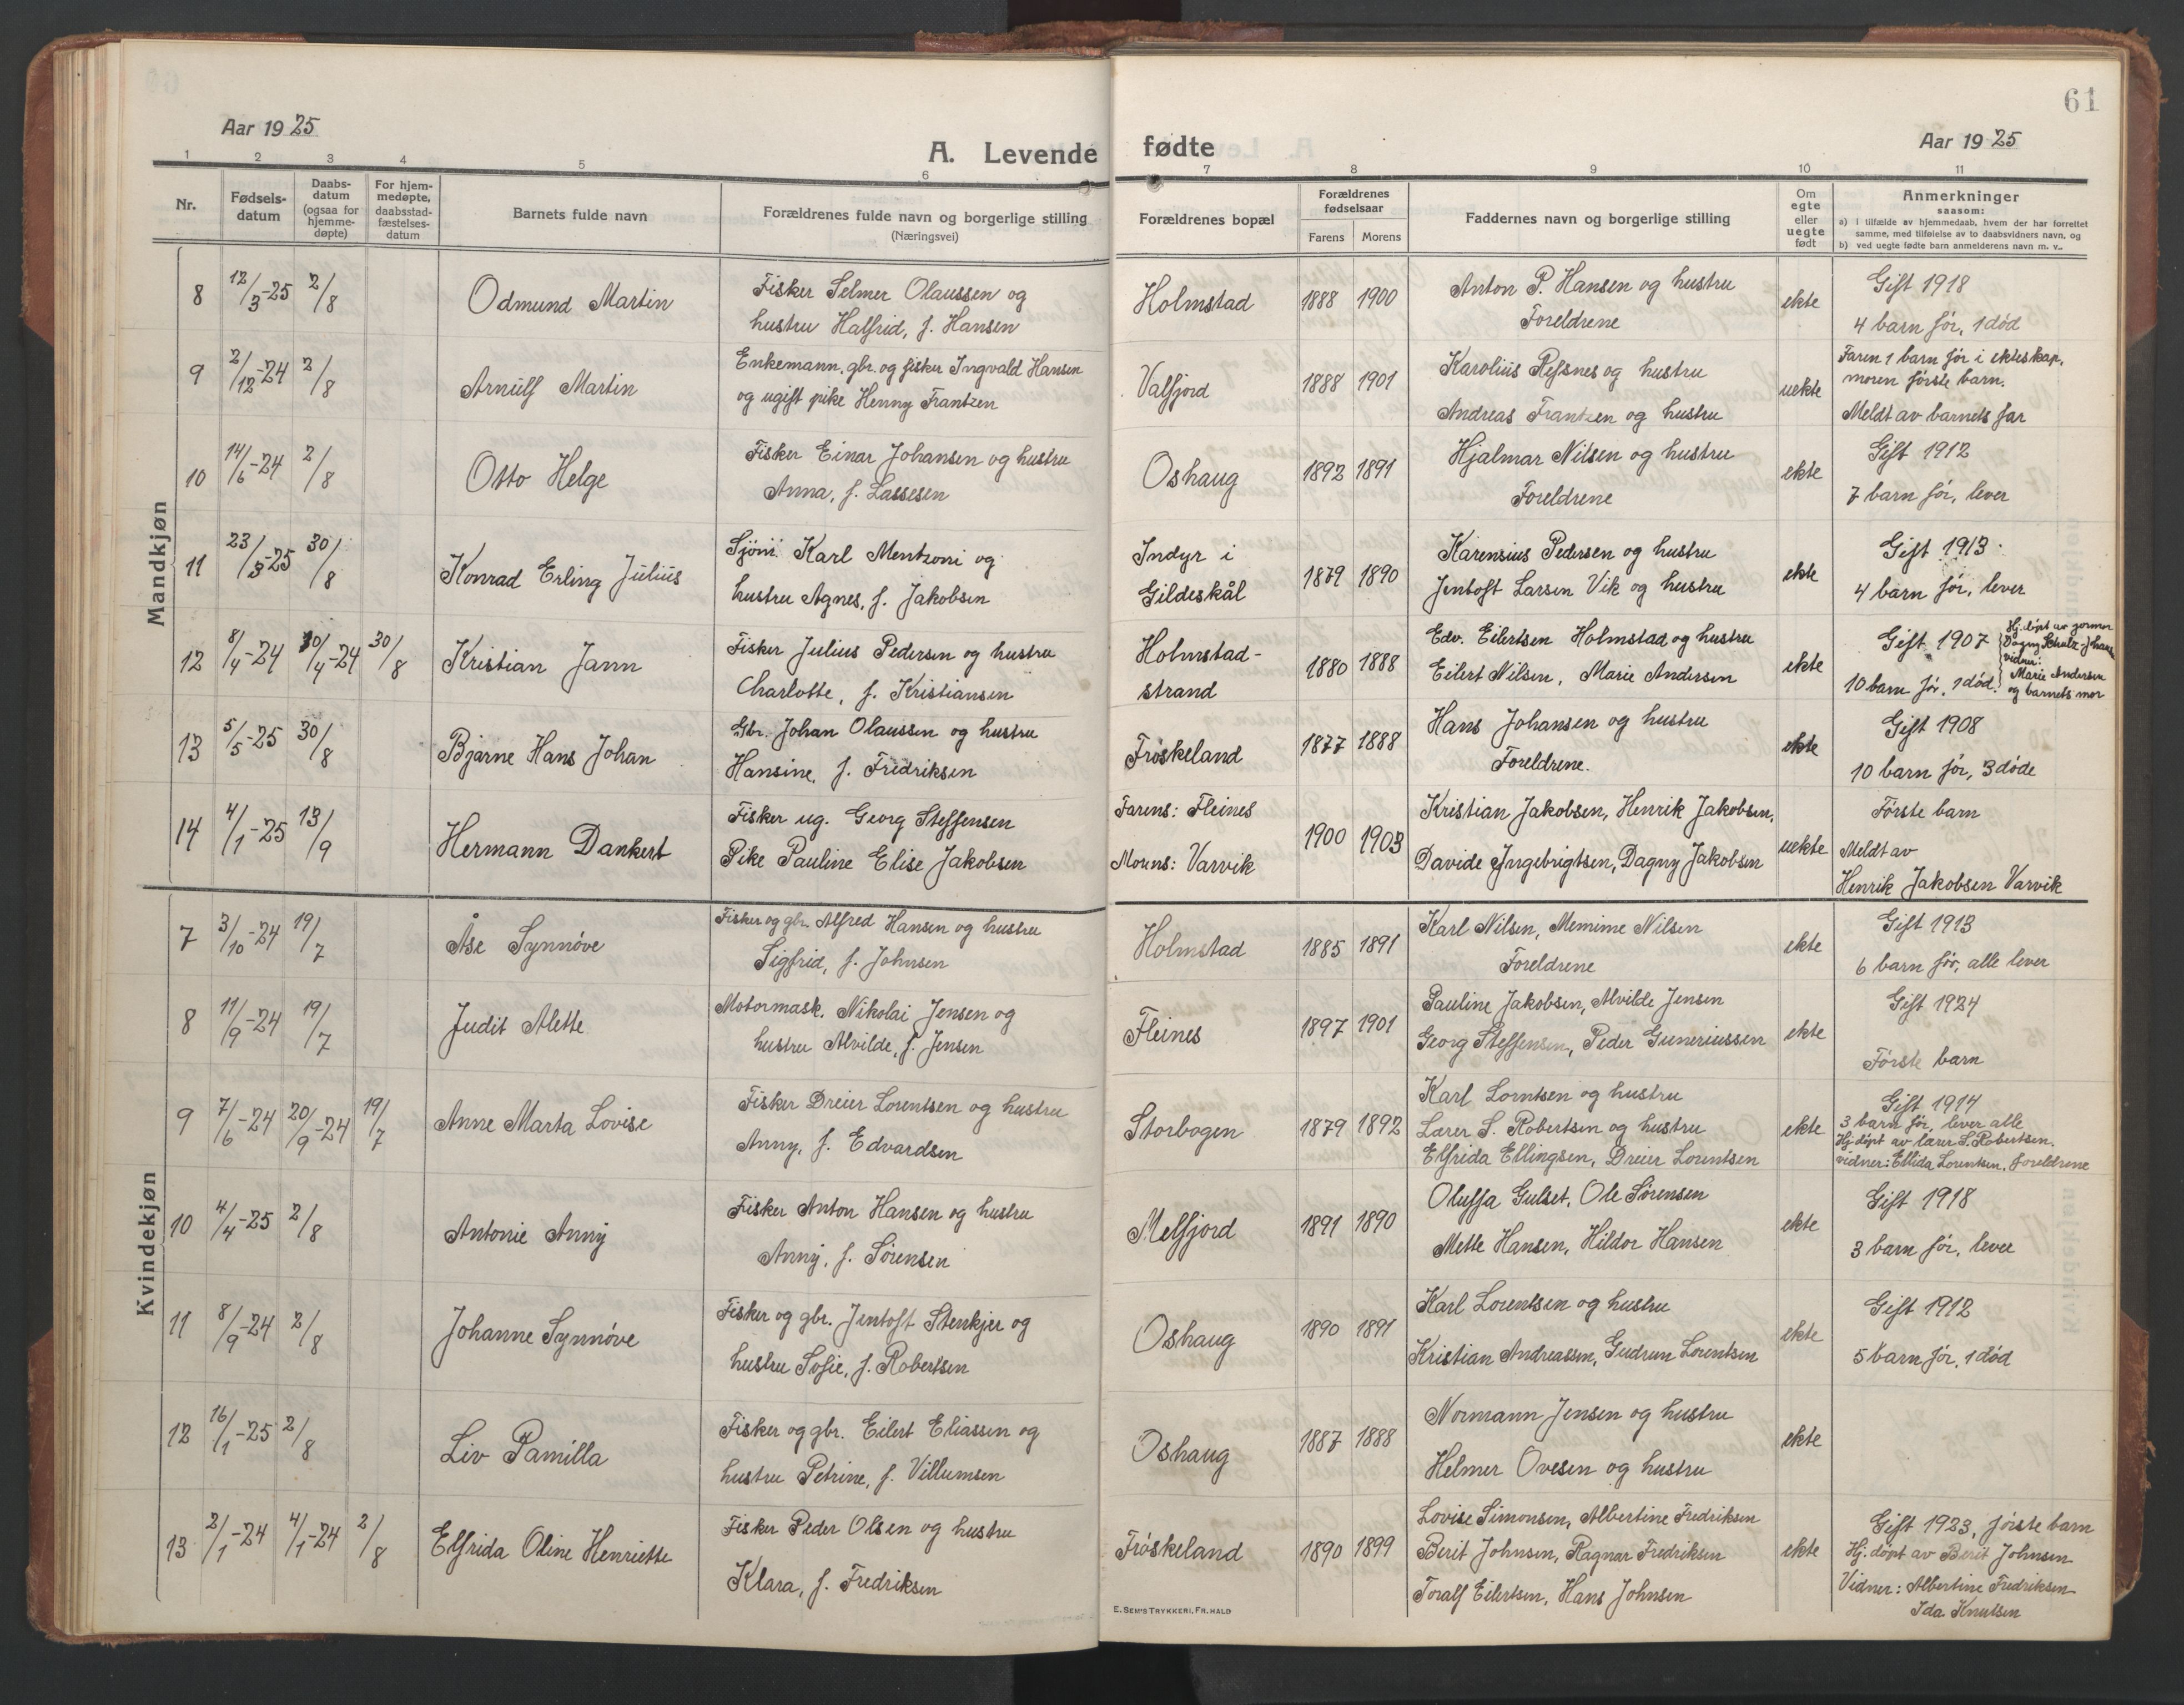 61
Aar 1925
A. Levende fødte
Aar 1925
1 2 3 4 5 6 7 8 9 10 11
Nr.
Fødsels-
datum
Daabs-
datum
(ogsaa for
hjemme-
døpte)
For hjem-
medøpte,
daabsstad-
fæstelses-
datum
Barnets fulde navn
Forældrenes fulde navn og borgerlige stilling
(Næringsvei)
Forældrenes bopæl
Forældrenes
fødselsaar
Farens Morens
Faddernes navn og borgerlige stilling
Om
egte
eller
uegte
født
Anmerkninger
saasom:
a) i tilfælde av hjemmedaab, hvem der har forrettet
samme, med tilføielse av to daabsvidners navn, og
b) ved uegte fødte barn anmelderens navn m. v..
Mandkjøn
8 12/3-25 2/8
Odmund Martin
Fisker Selmer Olaussen og
hustru Halfrid, f. Hansen
Holmstad
1888 1900
Anton P. Hansen og hustru
Foreldrene
ekte
Gift 1918
4 barn før, 1 død
9 2/12-24 2/8
Arnulf Martin
Enkemann, gbr. og fisker Ingvald Hansen
og ugift pike Henny Frantzen
Valfjord
1888 1901
Karolius Refsnes og hustru
Andreas Frantzen og hustru
uekte
Faren 1 barn før i ekteskap,
moren første barn.
Meldt av barnets far
10 14/6-24 2/8
Otto Helge
Fisker Einar Johansen og hustru
Anna, f. Lassesen
Oshaug
1892 1891
Hjalmar Nilsen og hustru
Foreldrene
ekte
Gift 1912
7 barn før, lever
11 23/3-25 30/8
Konrad Erling Julius
Sjøm. Karl Mentzoni og
hustru Agnes, f. Jakobsen
Indyr i
Gildeskål
1879 1890
Karensius Pedersen og hustru
Jentoft Larsen Vik og hustru
ekte
Gift 1913.
4 barn før, lever
12 8/4-24 30/4-24 30/8
Kristian Jann
Fisker Julius Pedersen og hustru
Charlotte, f. Kristiansen
Holmstad-
strand
1880 1888
Edv. Eilertsen Holmstad og hustru
Eilert Nilsen, Marie Andersen
ekte
Gift 1907
10 barn før, 1 død.
Hj. døpt av jormor
Dagny Schulz-
vidner:
Marie Andersen
og barnets mor
13 5/5-25 30/8
Bjarne Hans Johan
Gbr. Johan Olaussen og hustru
Hansine, f. Fredriksen
Frøskeland
1877 1888
Hans Johansen og hustru
Foreldrene.
ekte
Gift 1908
10 barn før, 3 døde
14 4/1-25 13/9
Hermann Dankert
Fisker ug. Georg Steffensen
Pike Pauline Elise Jakobsen
Farens: Fleines
Morens: Varvik
1900 1903
Kristian Jakobsen, Henrik Jakobsen,
Davide Ingebrigtsen, Dagny Jakobsen
uekte
Første barn
Meldt av
Henrik Jakobsen Varvik
Kvindekjøn
7 3/10-24 19/7
Åse Synnøve
Fisker og gbr. Alfred Hansen og hustru
Sigfrid, f. Johnsen
Holmstad
1885 1891
Karl Nilsen, Memime Nilsen
Foreldrene
ekte
Gift 1913
6 barn før, alle lever
8 11/9-24 19/7
Judit Alette
Motormask. Nikolai Jensen og
hustru Alvilde, f. Jensen
Fleines
1897 1901
Pauline Jakobsen, Alvilde Jensen
Georg Steffensen, Peder Guneriussen
ekte
Gift 1924
Første barn
9 7/6-24 20/9-24 19/7
Anne Marta Lovise
Fisker Dreier Lorentsen og hustru
Anny, f. Edvardsen
Storbogen
1879 1892
Karl Lorntsen og hustru
Lærer S. Robertsen og hustru
Elfrida Ellingsen, Dreier Lorentsen
ekte
Gift 1914
3 barn før, lever alle
Hj. døpt av lærer S. Robertsen.
vidner: Ellida Lorentsen, foreldrene
10 4/4-25 2/8
Antonie Anny
Fisker Anton Hansen og hustru
Anny, f. Sørensen
Melfjord
1891 1890
Oluffa Gulset, Ole Sørensen
Mette Hansen, Hildor Hansen
ekte
Gift 1918
3 barn før, lever
11 8/9-24 2/8
Johanne Synnøve
Fisker og gbr. Jentoft Stenkjer og
hustru Sofie, f. Robertsen
Oshaug
1890 1891
Karl Lorentsen og hustru
Kristian Andreassen, Gudrun Lorentsen
ekte
Gift 1912
5 barn før, 1 død
12 16/1-25 2/8
Liv Pamilla
Fisker og gbr. Eilert Eliassen og
hustru Petrine, f. Villumsen
Oshaug
1887 1888
Normann Jensen og hustru
Helmer Ovesen og hustru
ekte
13 2/1-24 4/1-24 2/8
Elfrida Oline Henriette
Fisker Peder Olsen og hustru
Klara, f. Fredriksen
Frøskeland
1890 1899
Lovise Simonsen, Albertine Fredriksen
Berit Johnsen, Ragnar Fredriksen
Toralf Eilertsen, Hans Johnsen
ekte
Gift 1923, første barn
Hj. døpt av Berit Johnsen
Vidner: Albertine Fredriksen
Ida Knutsen
E. SEM'S TRYKKERI, FR. HALD